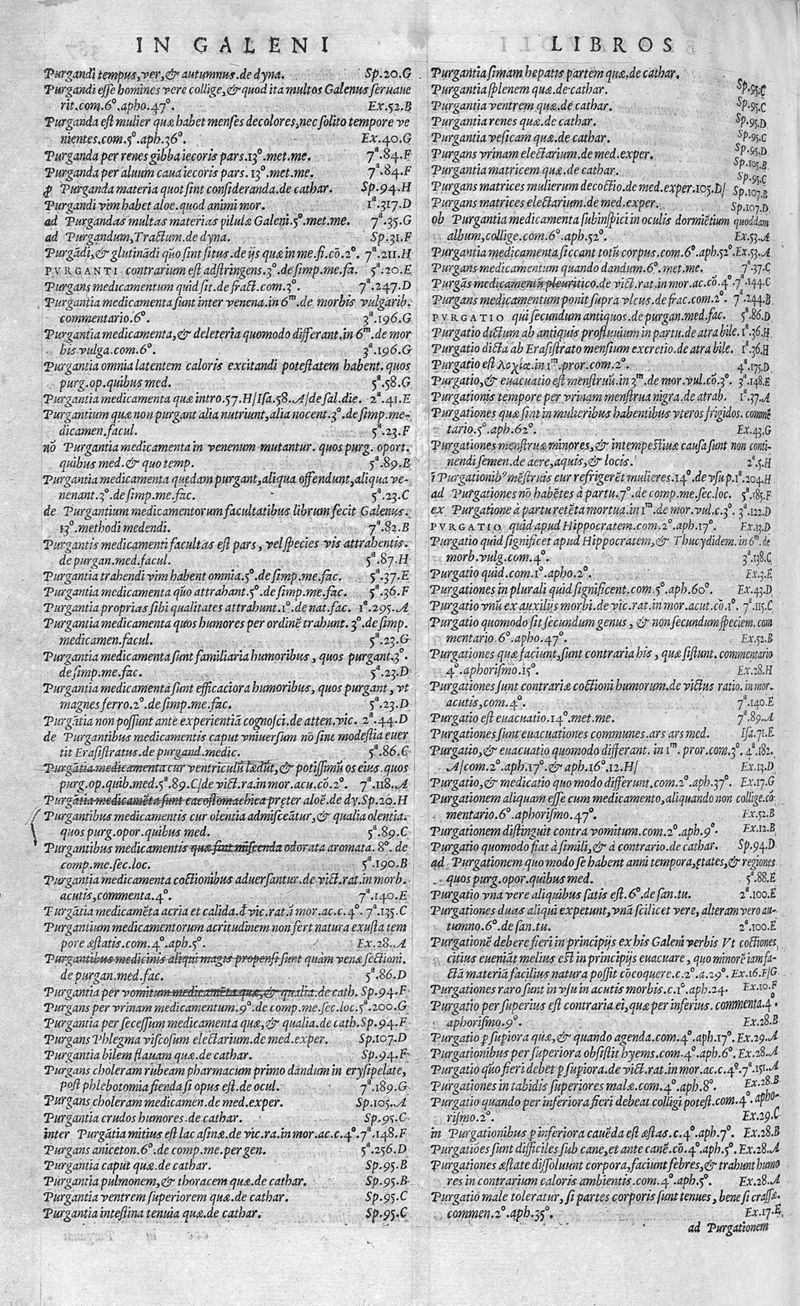 IN GALENI
Purgandi tempus, ver, & autumnus. de dyna. Sp.20.G
Purgandi esse homines vere collige, & quod ita multos Galenus seruaue
rit.com.6°.apho.47°. Ex.52.B
Purganda est mulier quæ habet menses decolores, nec solito tempore ve
nientes.com.5°.aph.36°. Ex.40.G
Purganda per renes gibba iecoris pars.13°.met.me. 7ª.84.F
Purganda per aluum caua iecoris pars.13°.met.me. 7ª.84.F
Purganda materia quot sint consideranda.de cathar. Sp.94.H
Purgandi vim habet aloe.quod animi mor. 1ª.317.D
ad Purgandas multas materias pilulæ Galeni.5°.met.me. 7ª.35.G
ad Purgandum, Tractum.de dyna. Sp.31.F
Purgādi, & glutinādi quo sint situs.de ijs quæ in me.fi.cō.2°. 7ª.211.H
PVRGANTI contrarium est adstringens.3°.de simp.me.fa. 5ª.20.E
Purgans medicamentum quid sit.de fract.com.3°. 7ª.247.D
Purgantia medicamenta sunt inter venena.in 6ᵐ.de morbis vulgarib.
commentario.6°. 3ª.196.G
Purgantia medicamenta, & deleteria quomodo differant.in 6ᵐ.de mor
bis vulga.com.6°. 3ª.196.G
Purgantia omnia latentem caloris excitandi potestatem habent. quos
purg.op.quibus med. 5ª.58.G
Purgantia medicamenta quæ intro.57.H/Isa.58.A/de sal.die. 2ª.41.E
Purgantium quæ non purgant alia nutriunt, alia nocent.3°.de simp.me-
dicamen.facul. 5ª.23.F
nō Purgantia medicamenta in venenum mutantur. quos purg. oport.
quibus med. & quo temp. 5ª.89.B
Purgantia medicamenta quedam purgant, aliqua offendunt, aliqua ve-
nenant.3°.de simp.me.fac. 5ª.23.C
de Purgantium medicamentorum facultatibus librum fecit Galenus.
13°.methodi medendi. 7ª.82.B
Purgantis medicamenti facultas est pars, vel species vis attrahentis.
de purgan.med.facul. 5ª.87.H
Purgantia trahendi vim habent omnia.5°.de simp.me.fac. 5ª.37.E
Purgantia medicamenta quo attrahant.5°.de simp.me.fac. 5ª.36.F
Purgantia proprias sibi qualitates attrahunt.1°.de nat.fac. 1ª.295.A
Purgantia medicamenta quos humores per ordinē trahunt. 3°.de simp.
medicamen.facul. 5ª.23.G
Purgantia medicamenta sunt familiaria humoribus, quos purgant.3°.
de simp.me.fac. 5ª.23.D
Purgantia medicamenta sunt efficaciora humoribus, quos purgant, vt
magnes ferro.2°.de simp.me.fac. 5ª.23.D
Purgātia non possunt ante experientiā cognosci.de atten.vic. 2ª.44.D
de Purgantibus medicamentis caput vniuersum nō sine modestia euer
tit Erasistratus.de purgand.medic. 5ª.86.C
Purgātia medicamenta cur ventriculū lædūt, & potissimū os eius. quos
purg.op.quib.med.5ª.89.C/de vict.ra.in mor.acu.cō.2°. 7ª.118.A
Purgātia medicamēta sunt cacostomachica preter aloē.de dy. Sp.20.H
Purgantibus medicamentis cur olentia admisceātur, & qualia olentia.
quos purg.opor.quibus med. 5ª.89.C
Purgantibus medicamentis quæ sint miscenda odorata aromata. 8°. de
comp.me.sec.loc. 5ª.190.B
Purgantia medicamenta coctionibus aduersantur.de vict.rat.in morb.
acutis, commenta.4°. 7ª.140.E
Purgātia medicamēta acria et calida.d vic.rat.ī mor.ac.c.4°. 7ª.135.C
Purgantium medicamentorum acritudinem non fert natura exusta tem
pore æstatis.com.4°.aph.5°. Ex.28.A
Purgantibus medicinis aliqui magis propensi sunt quam venæ sectioni.
de purgan.med.fac. 5ª.86.D
Purgantia per vomitum medicamēta quæ, & qualia.de cath. Sp.94.F
Purgans per vrinam medicamentum.9°.de comp.me.sec.loc. 5ª.200.G
Purgantia per secessum medicamenta quæ, & qualia.de cath. Sp.94.F
Purgans Phlegma viscosum electarium.de med.exper. Sp.107.D
Purgantia bilem flauam quæ.de cathar. Sp.94.F
Purgans choleram rubeam pharmacum primo dandum in erysipelate,
post phlebotomia fienda si opus est.de ocul. 7ª.189.G
Purgans choleram medicamen.de med.exper. Sp.105.A
Purgantia crudos humores.de cathar. Sp.95.C
inter Purgātia mitius est lac asinæ.de vic.ra.in mor.ac.c.4°. 7ª.148.F
Purgans aniceton.6°.de comp.me.per gen. 5ª.256.D
Purgantia caput quæ.de cathar. Sp.95.B
Purgantia pulmonem, & thoracem quæ.de cathar. Sp.95.B
Purgantia ventrem superiorem quæ.de cathar. Sp.95.C
Purgantia intestina tenuia quæ.de cathar. Sp.95.C
LIBROS
Purgantia simam hepatis partem quæ.de cathar. Sp.95.C
Purgantia splenem quæ.de cathar. Sp.95.C
Purgantia ventrem quæ.de cathar. Sp.95.D
Purgantia renes quæ.de cathar. Sp.95.C
Purgantia vesicam quæ.de cathar. Sp.95.D
Purgans vrinam electarium.de med.exper. Sp.105.B
Purgantia matricem quæ.de cathar. Sp.95.C
Purgans matrices mulierum decoctio.de med.exper.105.D/ Sp.107.B
Purgans matrices electarium.de med.exper. Sp.107.D
ob Purgantia medicamenta subinspici in oculis dormiētium quoddam
album, collige.com.6°.aph.52°. Ex.53.A
Purgantia medicamenta siccant totū corpus.com.6°.aph.52°. Ex.53.A
Purgans medicamentum quando dandum.6°.met.me. 7ª.37.C
Purgās medicamenū pleuritico.de vict.rat.in mor.ac.cō.4°. 7ª.144.C
Purgans medicamentum ponit supra vlcus.de frac.com.2°. 7ª.244.B
PVRGATIO qui secundum antiquos.de purgan.med.fac. 5ª.86.D
Purgatio dictum ab antiquis profluuium in partu.de atra bile. 1ª.36.H
Purgatio dicta ab Erasistrato mensium excretio.de atra bile. 1ª.36.H
Purgatio est λοχίæ.in 1ᵐ.pror.com.2°. 4ª.175.D
Purgatio, & euacuatio est menstruū.in 3ᵐ.de mor.vul.cō.3°. 3ª.148.E
Purgationis tempore per vrinam menstrua nigra.de atrab. 1ª.37.A
Purgationes quæ sint in mulieribus habentibus vteros frigidos. commē
tario.5°.aph.62°. Ex.43.G
Purgationes menstruæ minores, & intempestiuæ causa sunt non conti-
nendi semen.de aere, aquis, & locis. 2ª.5.H
ī Purgationibꝰ mēstruis cur refrigerēt mulieres.14°.de vsu p.1ª.204.H
ad Purgationes nō habētes à partu.7°.de comp.me.sec.loc. 5ª.185.F
ex Purgatione à partu retēta mortua.in 1ᵐ.de mor.vul.c.3°. 3ª.122.D
PVRGATIO quid apud Hippocratem.com.2°.aph.17°. Ex.13.D
Purgatio quid significet apud Hippocratem, & Thucydidem.in 6ᵐ.de
morb.vulg.com.4°. 3ª.138.C
Purgatio quid.com.1°.apho.2°. Ex.3.E
Purgationes in plurali quid significent.com.5°.aph.60°. Ex.43.D
Purgatio vnū ex auxilijs morbi.de vic.rat.in mor.acut.cō.1°. 7ª.115.C
Purgatio quomodo sit secundum genus, & non secundum speciem.com
mentario.6°.apho.47°. Ex.52.B
Purgationes quæ faciunt, sunt contraria his, quæ sistunt. commentario
4°.aphorismo.15°. Ex.28.H
Purgationes sunt contrariæ coctioni humorum.de victus ratio.in mor.
acutis, com.4°. 7ª.140.E
Purgatio est euacuatio.14°.met.me. 7ª.89.A
Purgationes sunt euacuationes communes.ars ars med. Isa.71.E
Purgatio, & euacuatio quomodo differant. in 1ᵐ. pror.com.3°. 4ª.182.
A/com.2°.aph.17°.& aph.16°.12.H/ Ex.13.D
Purgatio, & medicatio quo modo differunt.com.2°.aph.37°. Ex.17.G
Purgationem aliquam esse cum medicamento, aliquando non collige.cō
mentario.6°.aphorismo.47°. Ex.52.B
Purgationem distinguit contra vomitum.com.2°.aph.9°. Ex.12.B
Purgatio quomodo fiat à simili, & à contrario.de cathar. Sp.94.D
ad Purgationem quo modo se habent anni tempora, ętates, & regiones
quos purg.opor.quibus med. 5ª.88.E
Purgatio vna vere aliquibus satis est.6°.de san.tu. 2ª.100.E
Purgationes duas aliqui expetunt, vnā scilicet vere, alteram vero au-
tumno.6°.de san.tu. 2ª.100.E
Purgationē debere fieri in principijs ex his Galeni verbis Vt coctiones
citius eueniāt melius est in principijs euacuare, quo minorē iam fa-
ctā materiā facilius natura possit cōcoquere.c.2°.a.29°. Ex.16.F/G
Purgationes raro sunt in vsu in acutis morbis.c.1°.aph.24. Ex.10.F
Purgatio per superius est contraria ei, quæ per inferius. commenta.4.
aphorismo.9°. Ex.28.B
Purgatio p supiora quæ, & quando agenda.com.4°.aph.17°. Ex.29.A
Purgationibus per superiora obsistit hyems.com.4°.aph.6°. Ex.28.A
Purgatio quo fieri debet p supiora.de vict.rat.in mor.ac.c.4°. 7ª.151.A
Purgationes in tabidis superiores malæ.com.4°.aph.8°. Ex.28.B
Purgatio quando per inferiora fieri debeat colligi potest.com.4°. apho-
rismo.2°. Ex.29.C
in Purgationibus p inferiora cauēda est æstas.c.4°.aph.7°. Ex.28.B
Purgatiōes sūt difficiles sub cane, et ante canē.cō.4°.aph.5°. Ex.28.A
Purgationes æstate dissoluunt corpora, faciunt febres, & trahunt humo
res in contrarium caloris ambientis.com.4°.aph.5°. Ex.28.A
Purgatio male toleratur, si partes corporis sunt tenues, bene si crassæ.
commen.2°.aph.35°. Ex.17.E
ad Purgationem